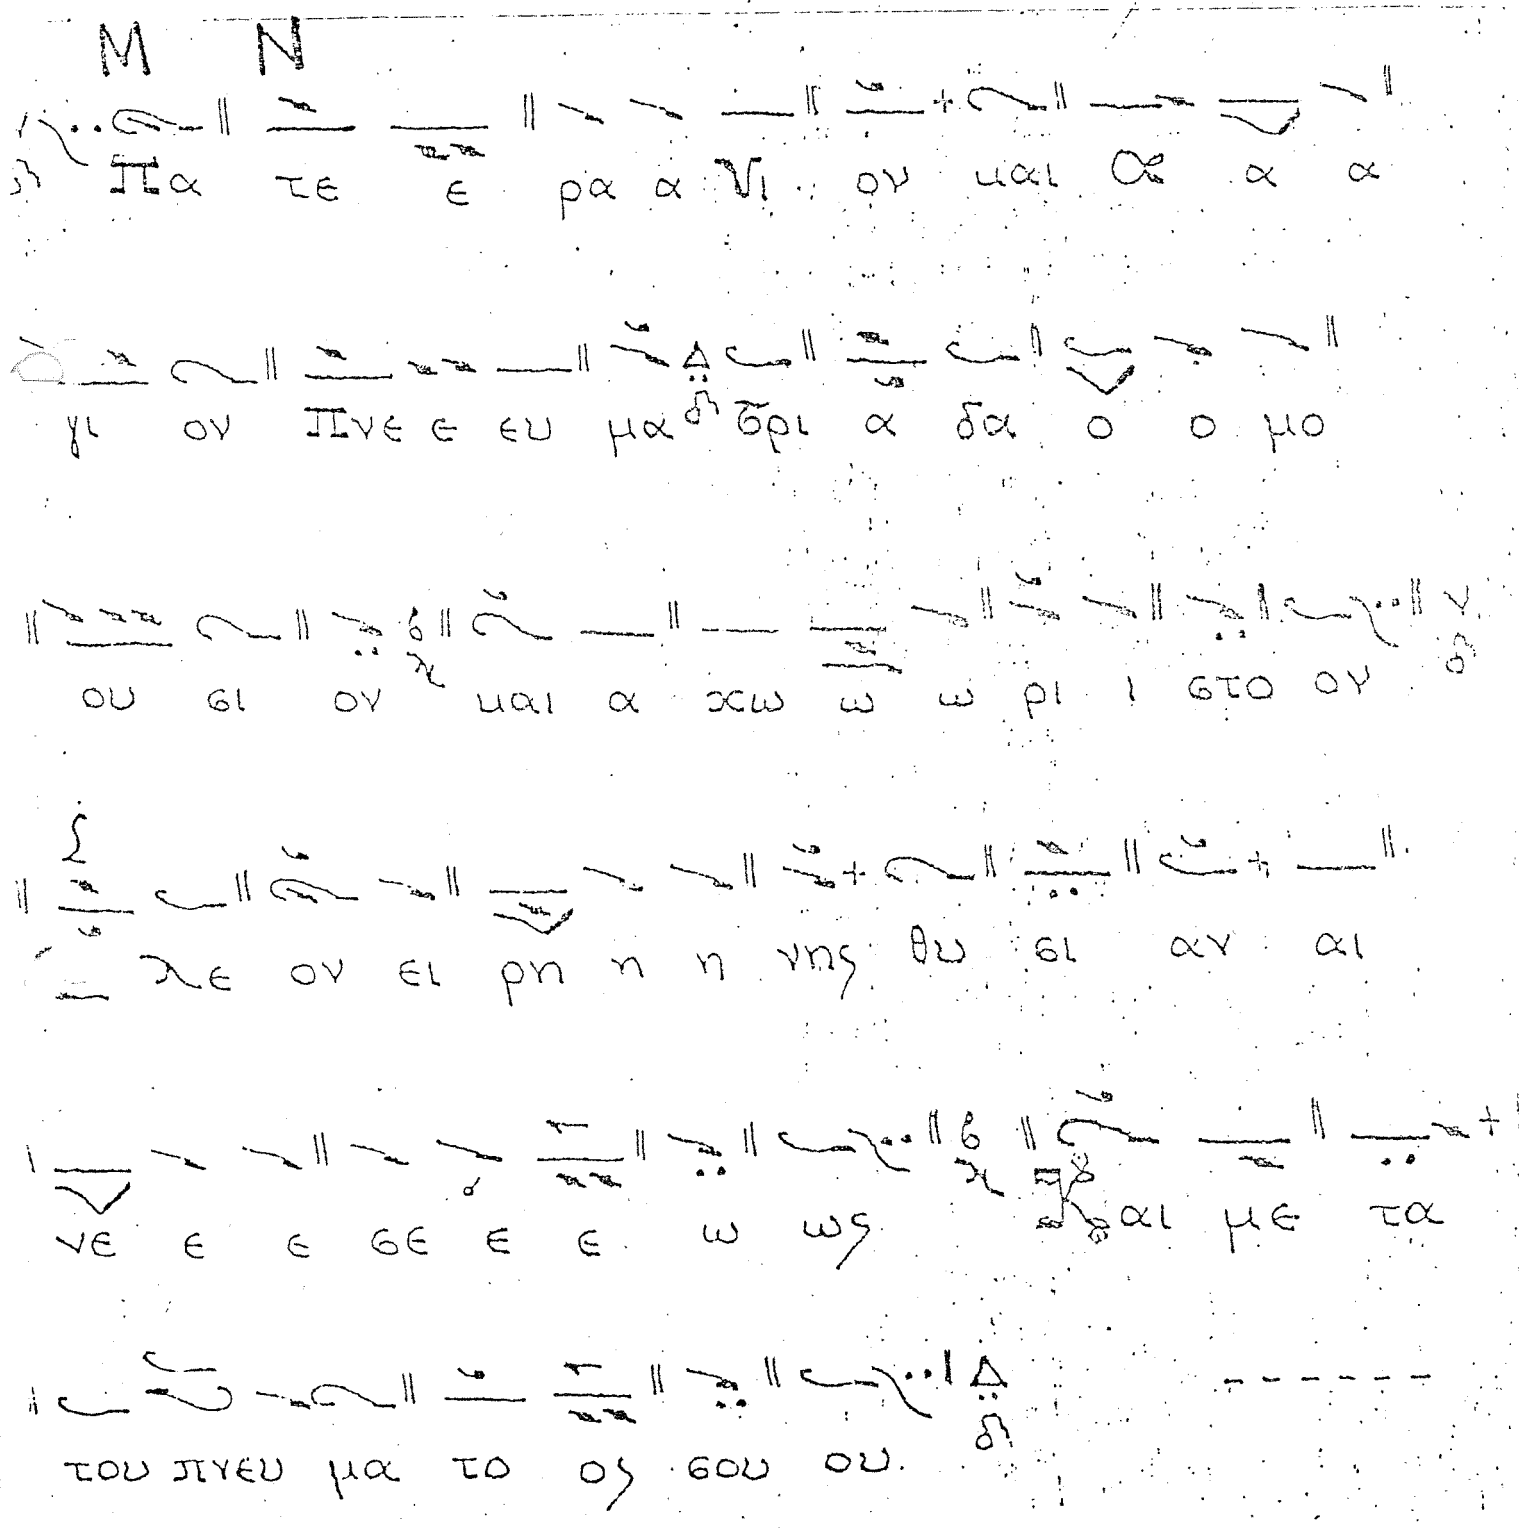 M N
Πα τε ε ρα α Υι ον και Α α α
γι ον Πνε ε ευ μα Τρι α δα ο ο μο
ου σι ον και α χω ω ω ρι ι στο ον
λε ον ει ρη η η νης θυ σι αν αι
νε ε ε σε ε ε ω ως και με τα
του πνευ μα το ος σου ου.